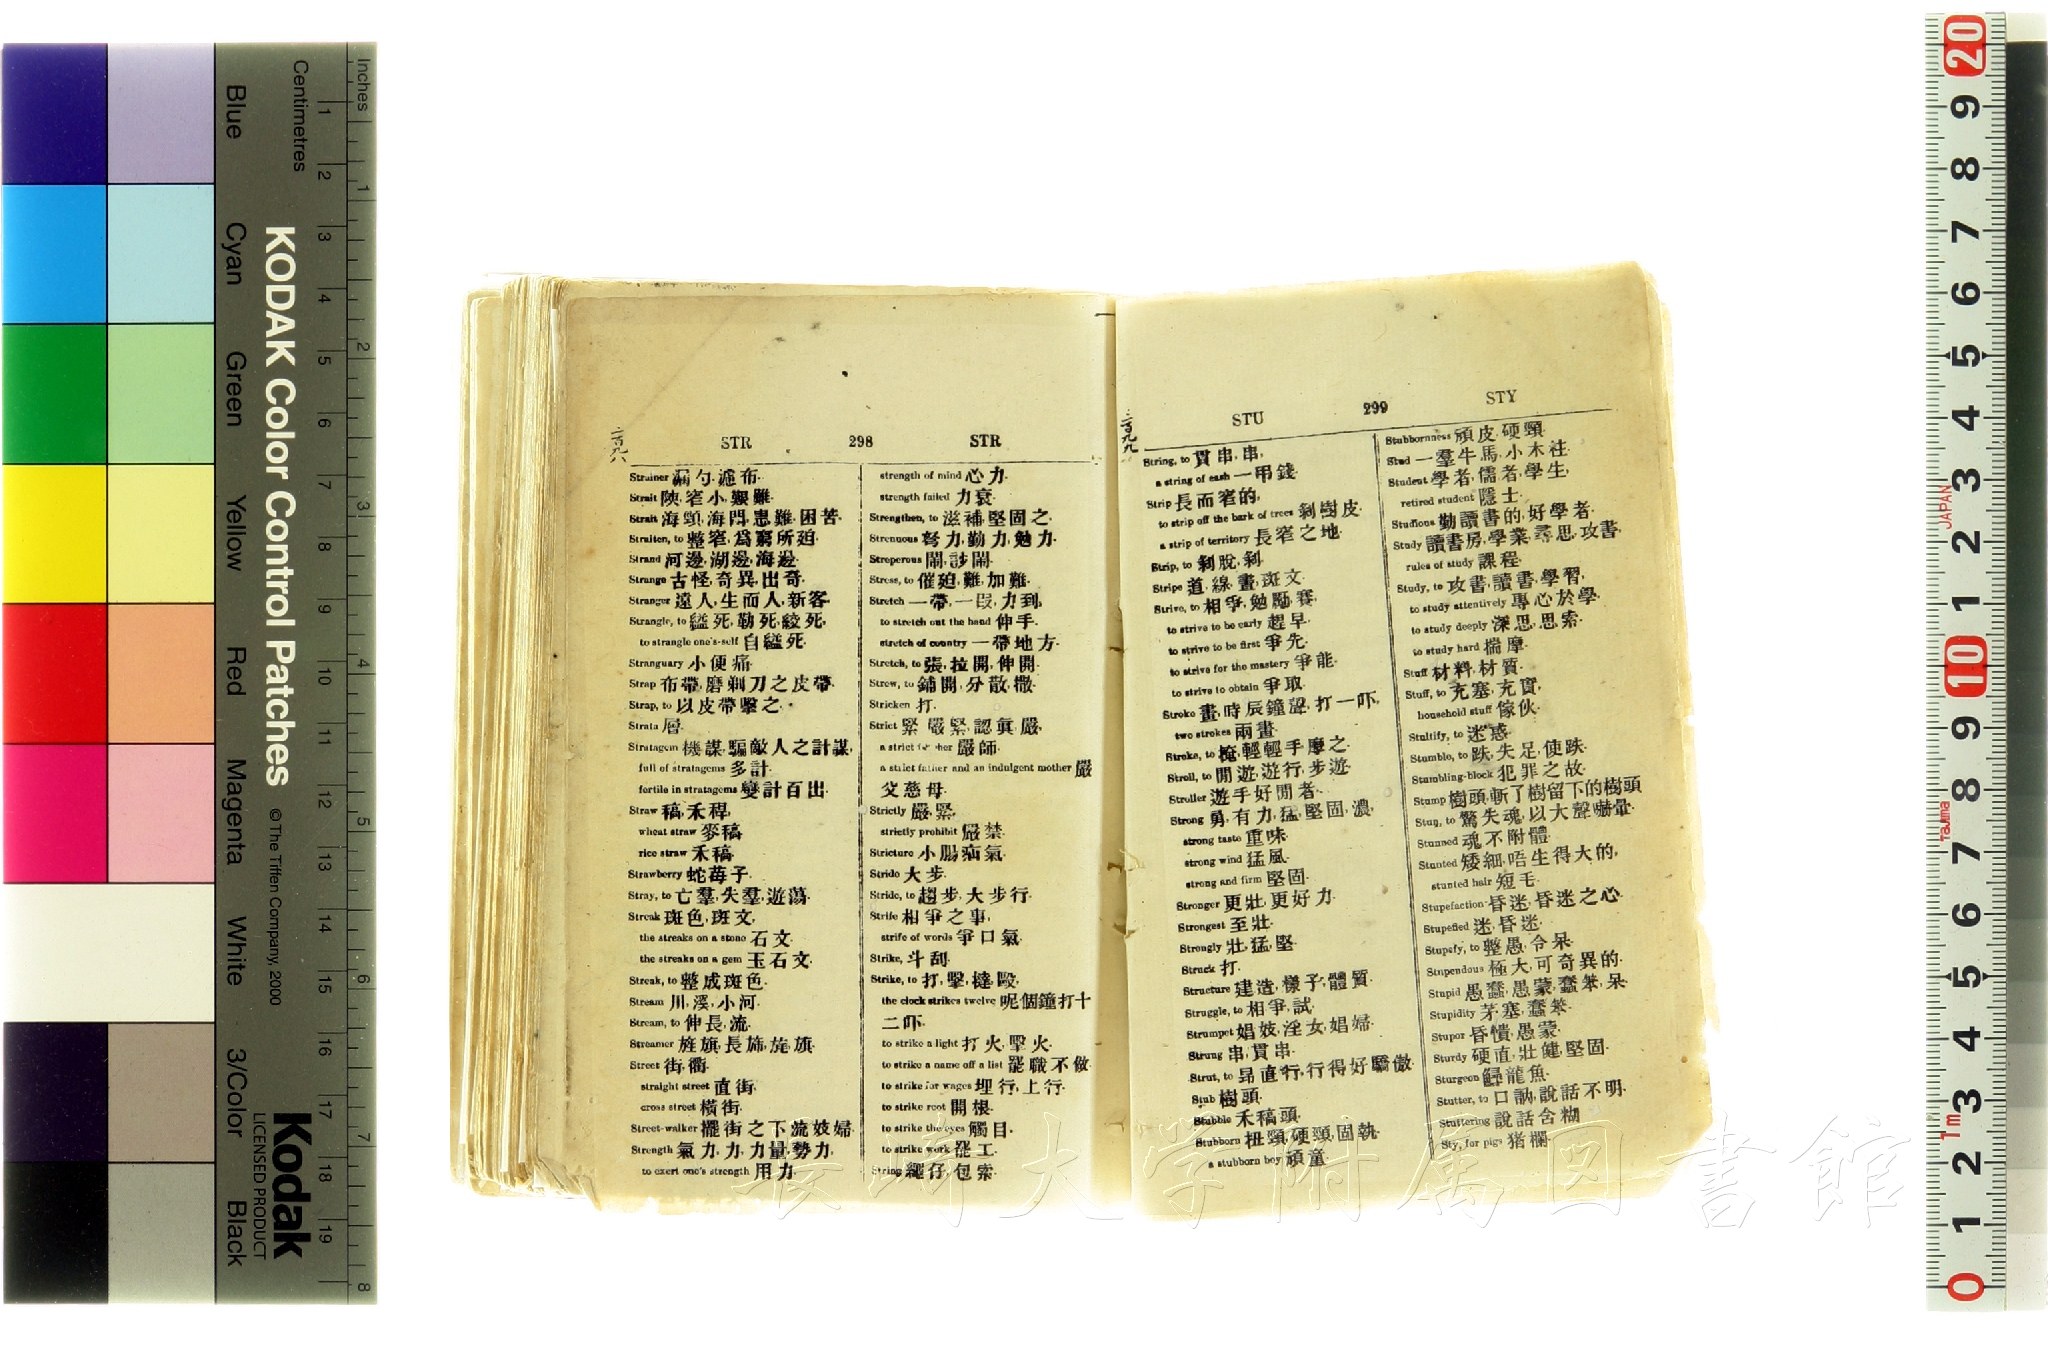 Inches
Centimetres
KODAK Color Control Patches
© The Tiffen Company, 2000
Kodak
LICENSED PRODUCT
Blue
Cyan
Green
Yellow
Red
Magenta
White
3/Color
Black
STR 298 STR
Strainer 漏勺, 濾布.
Strait 陜, 窄小, 艱難.
Strait 海頸, 海門, 患難, 困苦.
Straiten, to 整窄, 爲窮所廹.
Strand 河邊, 湖邊, 海邊.
Strange 古怪, 奇異, 出奇.
Stranger 遠人, 生而人, 新客.
Strangle, to 縊死, 勒死, 絞死,
to strangle one's-self 自縊死.
Stranguary 小便痛.
Strap 布帶, 磨剃刀之皮帶.
Strap, to 以皮帶擊之.
Strata 層.
Stratagem 機謀, 騙敵人之計謀,
full of stratagems 多計.
fertile in stratagems 變計百出.
Straw 稿, 禾稈,
wheat straw 麥稿,
rice straw 禾稿.
Strawberry 蛇苺子.
Stray, to 亡羣, 失羣, 遊蕩.
Streak 斑色, 斑文,
the streaks on a stone 石文.
the streaks on a gem 玉石文.
Streak, to 整成斑色.
Stream 川, 溪, 小河.
Stream, to 伸長, 流.
Streamer 旌旗, 長旆, 旄旗.
Street 街, 衢.
straight street 直街.
cross street 橫街.
Street-walker 擺街之下流妓婦.
Strength 氣力, 力, 力量, 勢力,
to exert one's strength 用力.
strength of mind 心力.
strength failed 力衰.
Strengthen, to 滋補, 堅固之.
Strenuous 努力, 勤力, 勉力.
Streperous 鬧, 訬鬧.
Stress, to 催廹, 難, 加難.
Stretch 一帶, 一段, 力到,
to stretch out the hand 伸手.
stretch of country 一帶地方.
Stretch, to 張, 拉開, 伸開.
Strew, to 鋪開, 分散, 撒.
Stricken 打.
Strict 緊, 嚴緊, 認眞, 嚴,
a strict father 嚴師.
a strict father and an indulgent mother 嚴
父慈母.
Strictly 嚴, 緊,
strictly prohibit 嚴禁.
Stricture 小腸疝氣.
Stride 大步.
Stride, to 趨步, 大步行.
Strife 相爭之事,
strife of words 爭口氣.
Strike, 斗刮.
Strike, to 打, 擊, 撻, 毆,
the clock strikes twelve 呢個鐘打十
二吓.
to strike a light 打火, 擊火.
to strike a name off a list 罷職不做.
to strike for wages 埋行, 上行.
to strike root 開根.
to strike the eyes 觸目.
to strike work 罷工.
String 繩仔, 包索.
二百九八
STU 299 STY
二百九九
String, to 貫串, 串,
a string of cash 一吊錢.
Strip 長而窄的,
to strip off the bark of trees 剝樹皮.
a strip of territory 長窄之地.
Strip, to 剝脫, 剝.
Stripe 道, 線, 畫, 斑文.
Strive, to 相爭, 勉勵, 賽,
to strive to be early 趕早.
to strive to be first 爭先.
to strive for the mastery 爭能.
to strive to obtain 爭取.
Stroke 畫, 時辰鐘聲, 打一吓,
two strokes 兩畫.
Stroke, to 掩, 輕輕手摩之.
Stroll, to 閒遊, 遊行, 步遊.
Stroller 遊手好閒者.
Strong 勇, 有力, 猛, 堅固, 濃,
strong taste 重味.
strong wind 猛風.
strong and firm 堅固.
Stronger 更壯, 更好力.
Strongest 至壯.
Strongly 壯, 猛, 堅.
Struck 打.
Structure 建造, 樣子, 體質.
Struggle, to 相爭, 試.
Strumpet 娼妓, 淫女, 娼婦.
Strung 串, 貫串.
Strut, to 昂直行, 行得好驕傲.
Stub 樹頭.
Stubble 禾稿頭.
Stubborn 扭頸, 硬頸, 固執,
a stubborn boy 頑童.
Stubbornness 頑皮, 硬頸.
Stud 一羣牛馬, 小木柱.
Student 學者, 儒者, 學生,
retired student 隱士.
Studious 勤讀書的, 好學者.
Study 讀書房, 學業, 尋思, 攻書,
rules of study 課程.
Study, to 攻書, 讀書, 學習,
to study attentively 專心於學.
to study deeply 深思, 思索.
to study hard 揣摩.
Stuff 材料, 材質.
Stuff, to 充塞, 充實,
household stuff 傢伙.
Stultify, to 迷惑.
Stumble, to 跌, 失足, 使跌.
Stumbling-block 犯罪之故.
Stump 樹頭, 斬了樹留下的樹頭
Stun, to 驚失魂, 以大聲嚇暈.
Stunned 魂不附體.
Stunted 矮細, 唔生得大的,
stunted hair 短毛.
Stupefaction 昏迷, 昏迷之心.
Stupefied 迷, 昏迷.
Stupefy, to 整愚, 令呆.
Stupendous 極大, 可奇異的.
Stupid 愚蠢, 愚蒙, 蠢笨, 呆.
Stupidity 茅塞, 蠢笨.
Stupor 昏憒, 愚蒙.
Sturdy 硬直, 壯健, 堅固.
Sturgeon 鱘龍魚.
Stutter, to 口訥, 說話不明.
Stuttering 說話含糊.
Sty, for pigs 猪欄.
長崎大学附属図書館
JAPAN
Tajima
1m